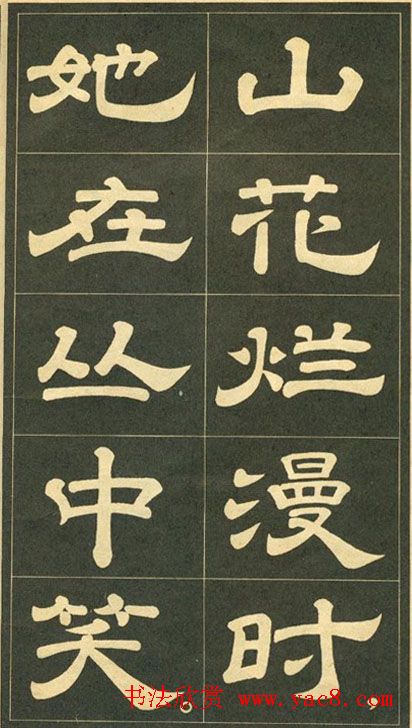 山花烂漫时
她在丛中笑
书法欣赏 www.yac8.com